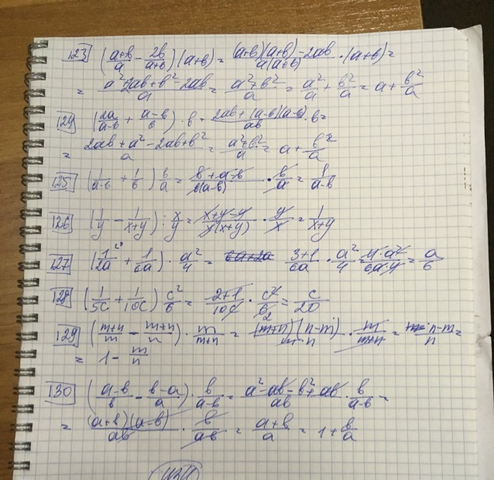 123 (a+b/a - 2b/a+b)(a+b) = (a+b)(a+b)-2ab/a(a+b) · (a+b) =
= a²+2ab+b²-2ab/a = a²+b²/a = a²/a + b²/a = a + b²/a
124 (2a/a-b + a-b/b) · b = 2ab+(a-b)(a-b)/ab · b =
= 2ab+a²-2ab+b²/a = a²+b²/a = a + b²/a
125 (1/a-b + 1/b) b/a = b+a-b/b(a-b) · b/a = 1/a-b
126 (1/y - 1/x+y) : x/y = x+y-y/y(x+y) · y/x = 1/x+y
127 (1/2a + 1/6a) · a²/4 = 3+1/6a · a²/4 = 4·a²/6a·4 = a/6
128 (1/5c + 1/10c) c²/6 = 2+1/10c · c²/6 = c/20
129 (m+n/m - m+n/n) · m/m+n = (m+n)(n-m)/m·n · m/m+n = n-m/n =
= 1 - m/n
130 (a-b/b - b-a/a) · b/a-b = a²-ab-b²+ab/ab · b/a-b =
= (a+b)(a-b)/ab · b/ab = a+b/a = 1 + b/a